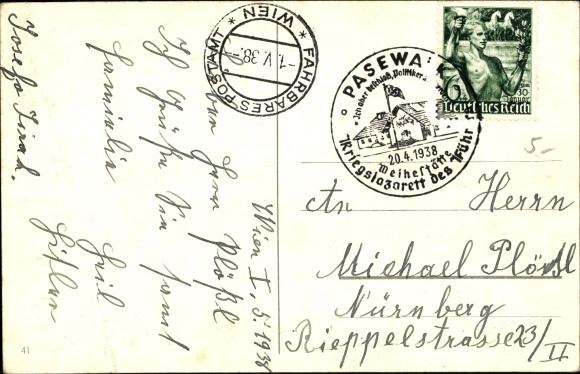 Wien I. 5. 1938
Herrn Plößl
Ich Grüße Sie samt
Familie
Heil
Hitler
Josefa
FAHRBARES POSTAMT
WIEN
-1.V.38.
PASEWALK
Ich aber beschloß, Politiker
20.4.1938
Weihestätte
Kriegslazarett des Führ
30
Deutsches Reich
5-
An Herrn
Michael Plößl
Nürnberg
Rieppelstrasse 23/II
41